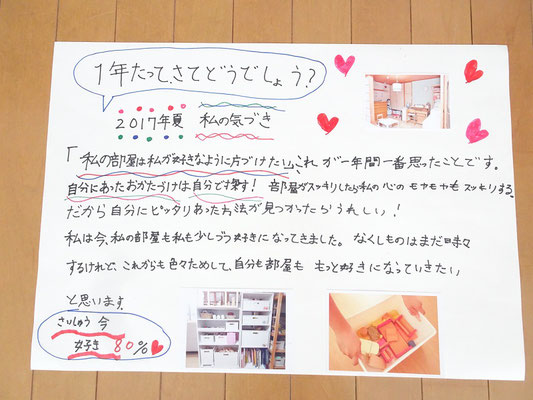 1年たって、さてどうでしょう?
2017年夏 私の気づき
「私の部屋は私が好きなように片づけたい」、これが一年間一番思ったことです。
自分にあったおかたづけは自分で探す! 部屋がスッキリしたら私の心のモヤモヤもスッキリする。
だから自分にピッタリあった方法が見つかったらうれしい!
私は今、私の部屋も私も少しづつ好きになってきました。なくしものはまだ日々
するけれど、これからも色々ためして、自分も部屋も もっと好きになっていきたい
と思います。
さいしゅう 今
好き 80%